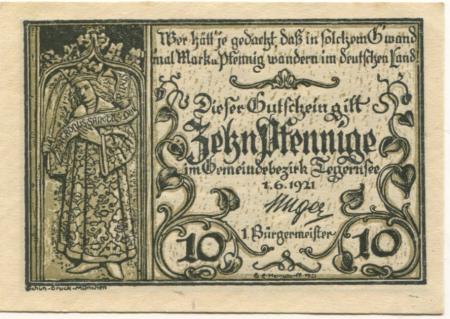 Wer hätt' je gedacht, daß in solchem Gwand
mal Mark u. Pfennig wandern im deutschen Land!
Dieser Gutschein gilt
Zehn Pfennige
im Gemeindebezirk Tegernsee
1.6.1921
1. Bürgermeister
10
10
Druck-München